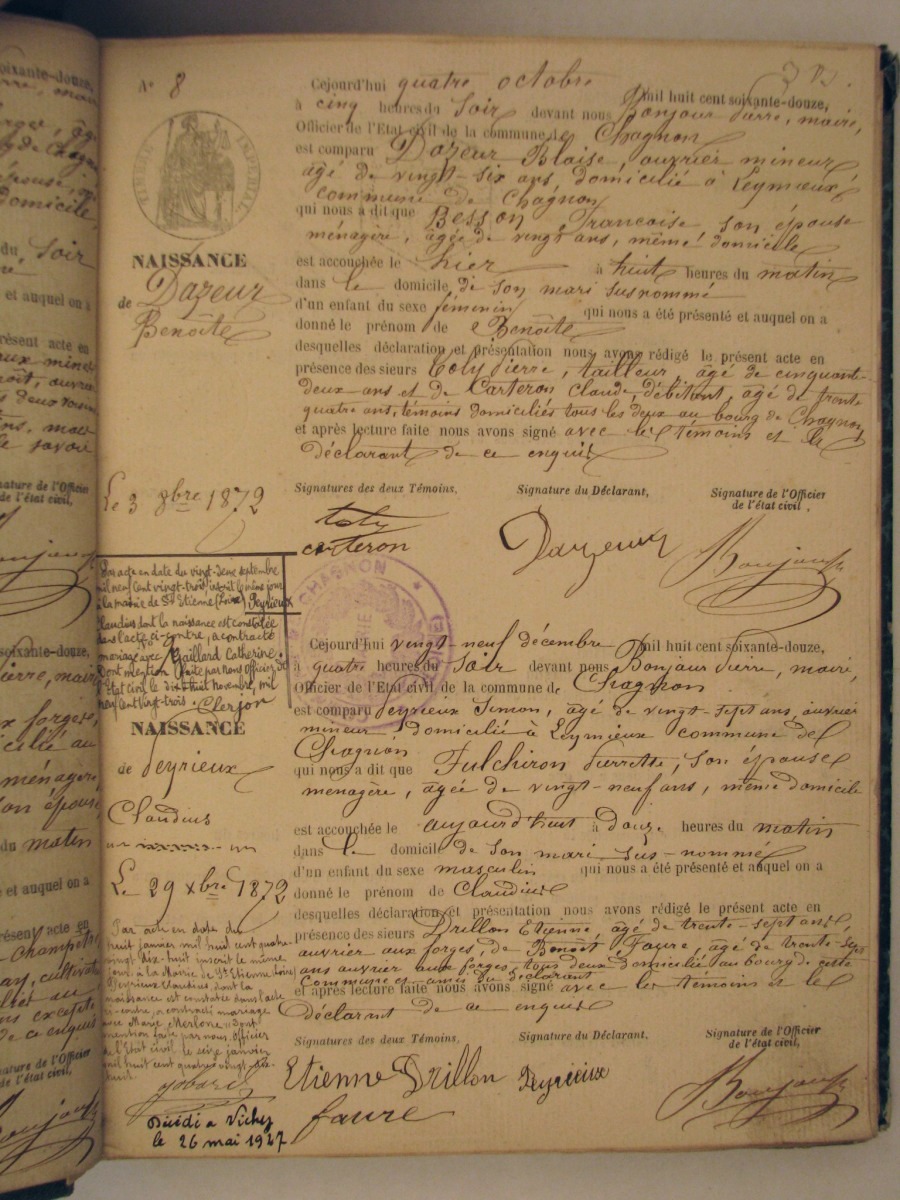 N° 8
TIMBRE IMPERIAL
NAISSANCE
de Dazeur
Benoîte
Le 3 8bre 1872
Cejourd'hui quatre octobre mil huit cent soixante-douze,
à cinq heures du soir devant nous Bonjour Pierre, maire,
Officier de l'Etat civil de la commune de Chagnon
est comparu Dazeur Blaise, ouvrier mineur
âgé de vingt-six ans, domicilié à Leymieux
commune de Chagnon
qui nous a dit que Besson Francoise son épouse
ménagère, âgée de vingt ans, même domicile
est accouchée le hier à huit heures du matin
dans le domicile de son mari susnommé
d'un enfant du sexe féminin qui nous a été présenté et auquel on a
donné le prénom de Benoîte
desquelles déclaration et présentation nous avons rédigé le présent acte en
présence des sieurs Coly Pierre, tailleur, âgé de cinquante-
deux ans et de Carteron Claude, débitant, âgé de trente
quatre ans, témoins domiciliés tous les deux au bourg de Chagnon
et après lecture faite nous avons signé avec les témoins et le
déclarant de ce enquis
Signatures des deux Témoins, Signature du Déclarant, Signature de l'Officier
de l'état civil.
carteron Dazeur Bonjour
CHAGNON
Par acte en date du vingt-deux septembre
mil neuf cent vingt-trois, inscrit le même jour
à la mairie de St Etienne (Loire) Peyrieux
Claudius dont la naissance est constatée
dans l'acte ci-contre, a contracté
mariage avec Gaillard Catherine.
Dont mention faite par nous Officier de
l'Etat civil le dix huit Novembre, mil
neuf cent vingt-trois. Clerjon
NAISSANCE
de Peyrieux
Claudius
Le 29 xbre 1872
Cejourd'hui vingt-neuf décembre mil huit cent soixante-douze,
à quatre heures du soir devant nous Bonjour Pierre, maire,
Officier de l'Etat civil de la commune de Chagnon
est comparu Peyrieux Simon, âgé de vingt-sept ans, ouvrier
mineur, domicilié à Leymieux commune de
Chagnon
qui nous a dit que Fulchiron Pierrette, son épouse
menagère, agée de vingt-neuf ans, même domicile
est accouchée le aujourd'huit à douze heures du matin
dans le domicile de son mari sus-nommé
d'un enfant du sexe masculin qui nous a été présenté et auquel on a
donné le prénom de Claudius
desquelles déclaration et présentation nous avons rédigé le présent acte en
présence des sieurs Drillon Etienne, âgé de trente-sept ans,
ouvrier aux forges, de Benoît Faure, âgé de trente-sept
ans ouvrier aux forges, tous deux domicilié au bourg de cette
Commune et amis du déclarant
et après lecture faite nous avons signé avec les témoins et le
déclarant de ce enquis
Signatures des deux Témoins, Signature du Déclarant, Signature de l'Officier
de l'état civil,
Etienne Drillon Peyrieux Bonjour
faure
Par acte en date du
huit janvier mil huit cent quatre-
vingt-dix-huit inscrit le même
jour à la Mairie de St Etienne (Loire)
Peyrieux Claudius dont la
naissance est constatée dans l'acte
ci-contre, a contracté mariage
avec Marie Merlone. Dont
mention faite par nous Officier
de l'Etat civil le seize janvier
mil huit cent quatre vingt dix-
huit.
Décédé à Vichy
le 26 mai 1947